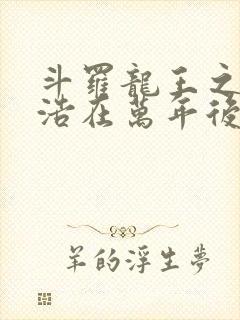 斗羅龍王之
浩在萬年後
羊的浮生夢